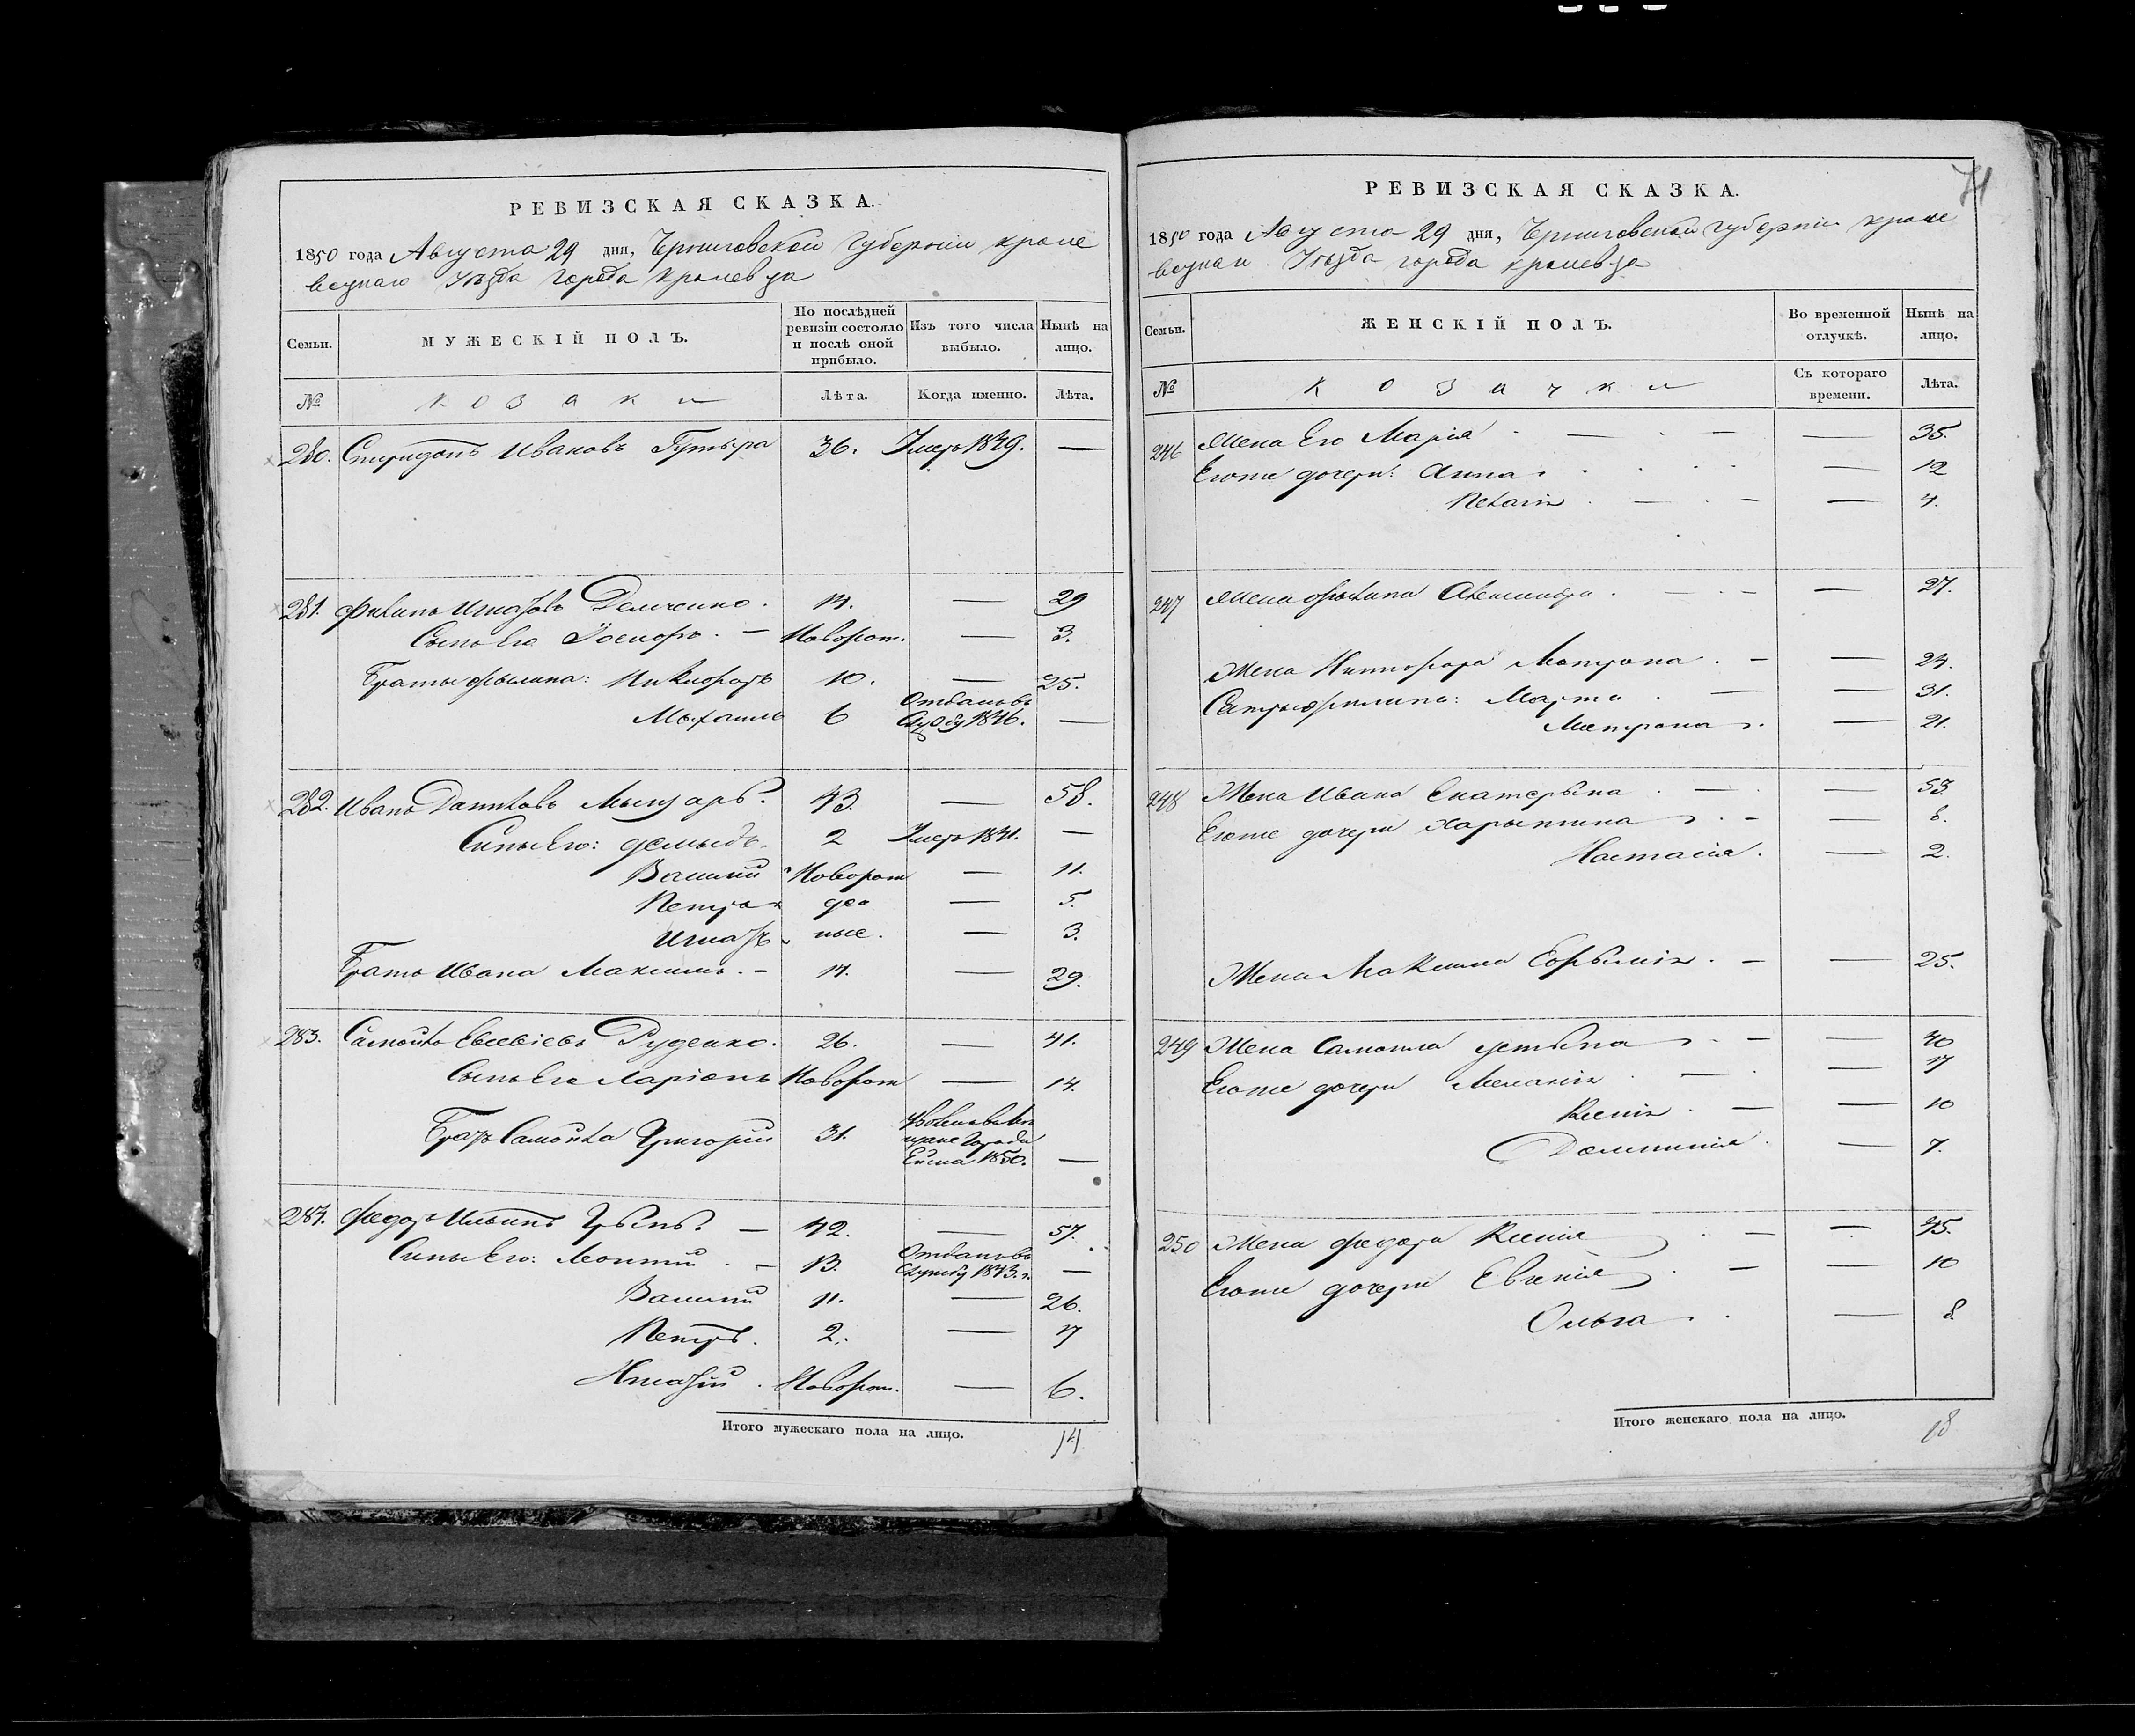 РЕВИЗСКАЯ СКАЗКА.
1850 года Августа 29 дня, Черниговской Губернии кроле
вецкаго Уѣзда города кролевца
Семьи.
МУЖЕСКІЙ ПОЛЪ.
По послѣдней ревизіи состояло и послѣ оной прибыло.
Изъ того числа выбыло.
Нынѣ на лицо.
№
козаки
Лѣта.
Когда именно.
Лѣта.
280. Спиридонъ Ивановъ 36. Умеръ 1849. —
281. Игнатовъ Демченко. 14. — 29
Сынъ Его Новорож. — 3.
Браты Филипа: Никифоръ 10. — 25.
Михаилъ 6 Отданъ въ Службу 1846. —
282. Иванъ Даниловъ 43. — 58.
Сыны Его: Демыдъ. 2 Умеръ 1841. —
Василий Новорож — 11.
Петръ ден — 5.
Игнатъ ные. — 3.
Братъ Ивана Максимъ. — 14. — 29.
283. Самойло Евсевіевъ Руденко. 26. — 41.
Сынъ Его Ларіонъ Новорож — 14.
Братъ Самойла Григорий 31. 1850. —
284. Федоръ Ильинъ — 42. — 57.
Сыны Его: — 13. Отданъ въ Службу 1843. г. —
Василий 11. — 26.
Петръ. 2. — 17
Игнатій. Новорож. — 6.
Итого мужескаго пола на лицо.
14
71
РЕВИЗСКАЯ СКАЗКА.
1850 года Августа 29 дня, Черниговской Губерніи кроле
вецкаго Уѣзда города кролевца
Семьи.
ЖЕНСКІЙ ПОЛЪ.
Во временной отлучкѣ.
Нынѣ на лицо.
№
козачки
Съ котораго времени.
Лѣта.
246 Жена Его Марія — 35.
Егоже дочери: Анна — 12
Пелагія — 4.
247 Жена Филипа Александра — 27.
Жена Никифора Матрона — 24.
Сестры Филипа: Марта — 31.
Матрона — 21.
248 Жена Ивана Екатерына — 53.
Егоже дочери Харытина — 8.
Настасія — 2.
Жена Максима Ефымія — 25.
249 Жена Самоила Устына — 40
Егоже дочери Меланія — 17
Ксенія — 10
Домникія — 7.
250 Жена Федора Ксенія — 45.
Егоже дочери Евгенія — 10
Ольга — 8.
Итого женскаго пола на лицо.
18